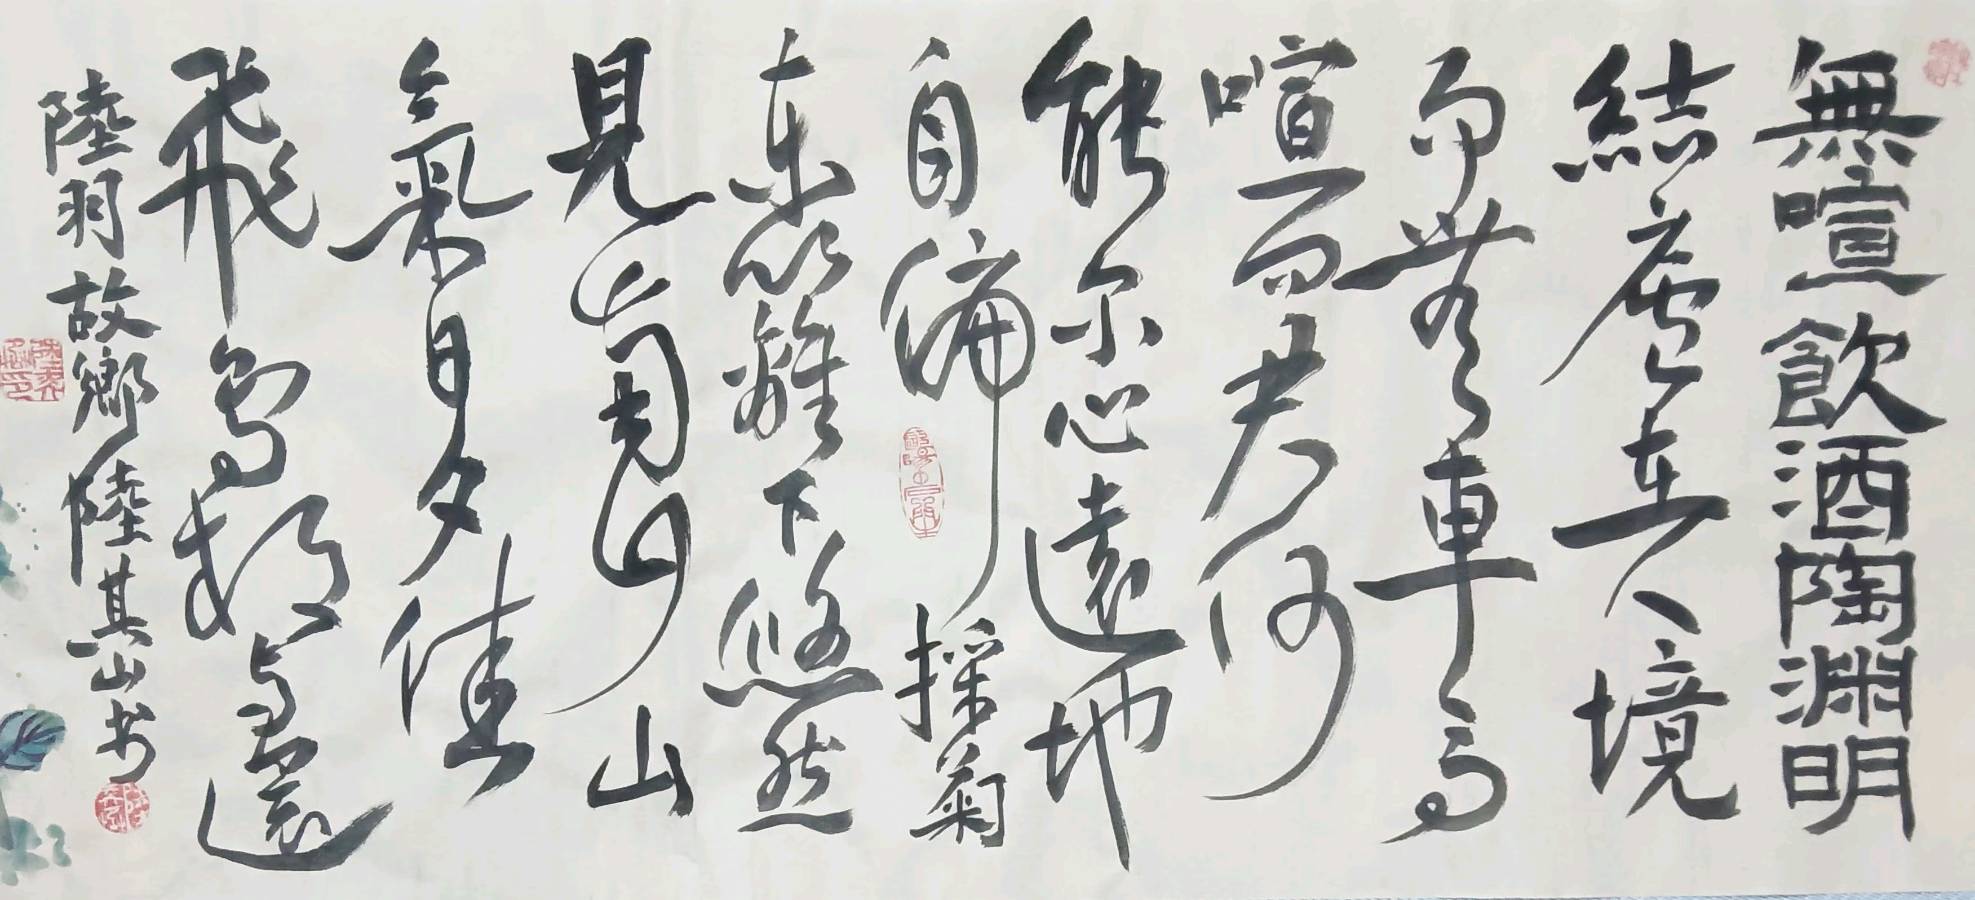 無喧飲酒陶淵明
結廬在人境
而無車馬
喧問君何
能尔心遠地
自偏採菊
東籬下悠然
見南山
氣日夕佳
飛鳥相与還
陸羽故鄉陸其山书